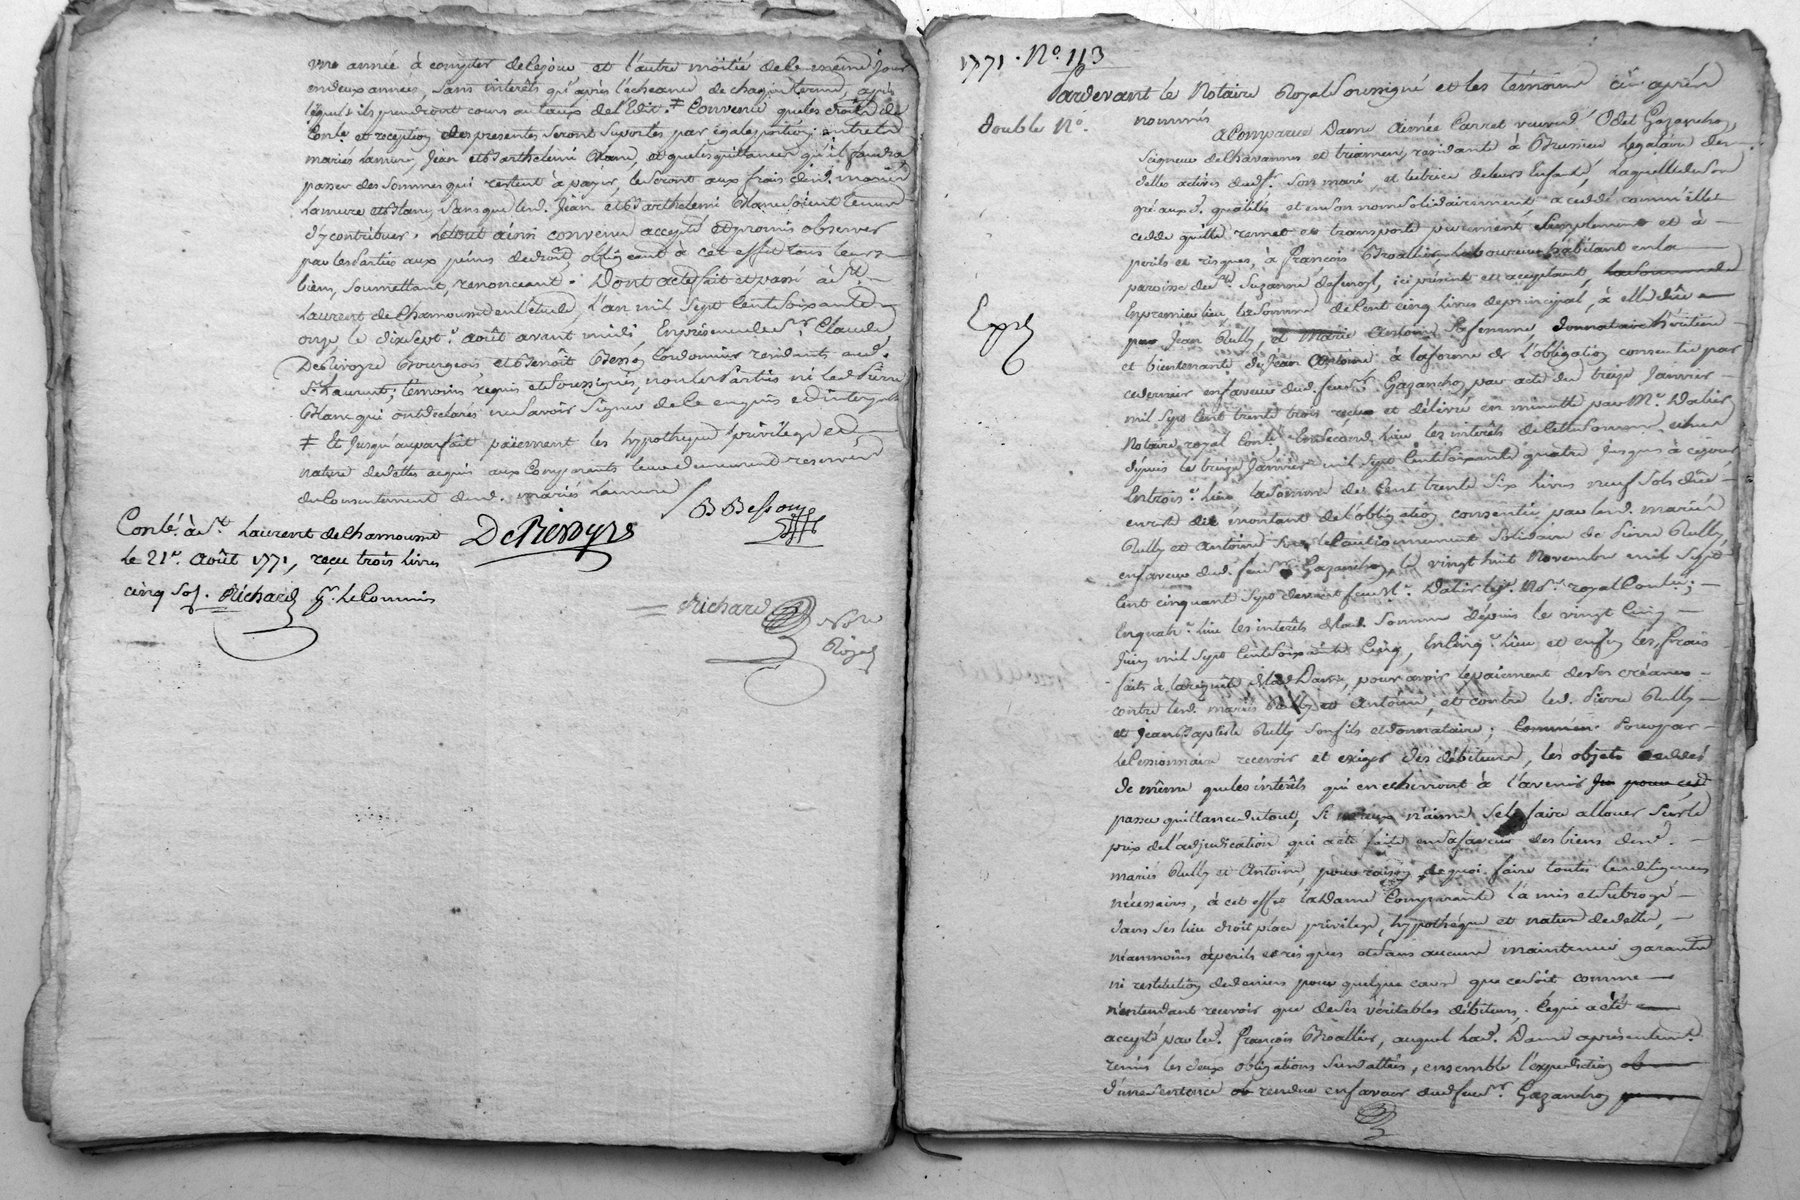 une année à compter de ce jour et l'autre moitié de ce même jour
en deux années, sans intérêts qu'après l'échéance de chaque terme, après
lesquels ils prendront cours au taux de l'Edit. ≠ Convenu que les droits de
Conle. et reception des presentes seront suportés par égales portions entre les
mariés Lamure, Jean et Barthelemi Blanc, et que les quittances qu'il faudra
passer des sommes qui restent à payer, le seront aux frais desd. mariés
Lamure et Blanc, sans que lesd. Jean et Barthelemi Blanc soient tenus
d'y contribuer. Le tout ainsi convenu accepté et promis observer
par les Parties aux peines de droit, obligeant à cet effet tous leurs
biens, soumettant, renonceant. Dont acte fait et passé à St.
Laurent de Chamousset en l'étude, l'an mil sept cent soixante
onze le dix sept. août avant midi, En présence de Sr. Claude
Bourgeois, et Benoît Besson Cordonnier residents aud.
St. Laurent, témoins requis et soussignés, non les Parties ni led. Pierre
Blanc qui ont declarés ne savoir signer de ce enquis et interpellés
≠ Et jusqu'au parfait païement les hypothèque privilege et
nature de dettes acquis aux Comparants leur demeurent reservés
du consentement desd. mariés Lamure
B Besson
Conlé. à St. Laurent de Chamousset
le 21e. Août 1771, reçu trois livres
cinq sols. Richard pr. le Commis
Richard Nore
Royal
1771. No. 113
Pardevant le Notaire Royal soussigné et les témoins ci-après
double No.
nommés
A Comparue Dame Aimée Carret veuve d'Odet Gazanchon,
Seigneur de Chavannes et residante à Brussieu Legataire des
dettes actives dud. Sr. son mari et tutrice de leurs Enfants, Laquelle de son
gré auxd. qualités et en son nom solidairement a cedé comme elle
cede quitte remet et transporte purement simplement et à
perils et risques, à François Broallier Laboureur habitant en la
paroisse de ici présent et acceptant, la somme de
En premier lieu la somme de Cent cinq livres de principal, à elle dûe
par Jean Rully, et Marie Antoine sa femme, donnataire héritiere
et bientenante de Jean Antoine à la forme de l'obligation consentie par
ce dernier en faveur dud. feu Sr. Gazanchon par acte du treize Janvier
mil sept cent trente trois, reçue et délivré en minutte par Me. Dalier
Notaire royal Conlé. En second lieu les intérêts de cette somme échus
depuis le treize Janvier mil sept cent soixante quatre jusques à ce jour
En trois. lieu la somme de Cent trente six livres neuf sols dûe
en reste du montant de l'obligation consentie par lesd. mariés
Rully et Antoine sous le Cautionnement solidaire de Pierre Rully,
en faveur dud. feu Sr. Gazanchon, le vingt huit Novembre mil sept
cent cinquante sept devant feu Me. Dalier Nore. royal Conlé.;
En quatr. lieu les intérêts de lad. somme depuis le vingt cinq
Juin mil sept cent soixante cinq, En cinq. lieu et enfin les frais
faits à la requête de lad. Dame, pour avoir le paiement de ses créances
contre lesd. mariés Rully et Antoine, et contre led. Pierre Rully
et Jean Baptiste Rully son fils et donnataire; Pour par
le Cessionnaire recevoir et exiger des débiteurs, les objets cedés
de même que les intérêts qui en echerront à l'avenir
passer quittance du tout, si mieux n'aime se le faire allouer sur le
prix de l'adjudication qui a été faite en sa faveur des biens desd.
mariés Rully et Antoine, pour raison de quoi faire toutes les diligences
nécessaires, à cet effet la Dame Comparante l'a mis et subrogé
dans ses lieu droit place privilege, hypothéque et nature de dette,
néanmoins à perils et risques et sans aucune maintenue garantie
ni restitution de deniers pour quelque cause que ce soit comme
n'entendant recevoir que de ses véritables débiteurs. Ce qui a été
accepté par led. François Broallier, auquel lad. Dame a présentemt.
remis les deux obligations susdattées, ensemble l'expedition
d'une sentence rendue en faveur dud. feu Sr. Gazanchon